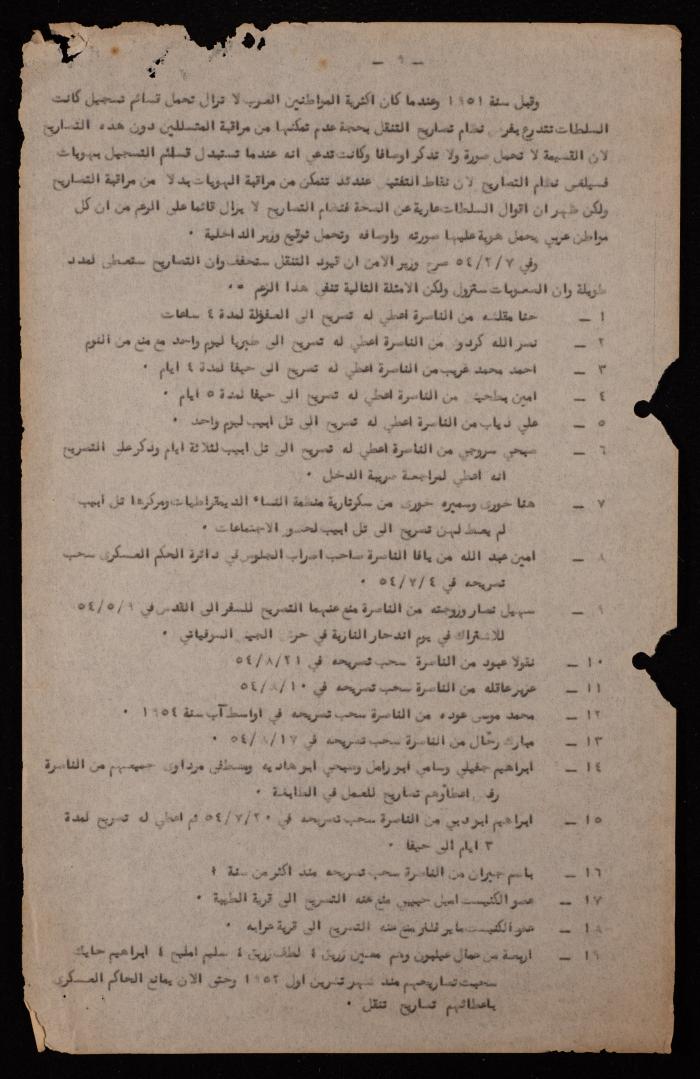 — ٩ —
وقبل سنة ١٩٥١ وعندما كان اكثرية المواطنين العرب لا تزال تحمل قسائم تسجيل كانت
السلطات تتدرع بفرض نظام تصاريح التنقل بحجة عدم تمكنها من مراقبة المتسللين دون هذه التصاريح
لان القسيمة لا تحمل صورة ولا تذكر اوصافا وكانت تدعي انه عندما تستبدل قسائم التسجيل بهويات
فسيلغى نظام التصاريح لان نقاط التفتيش عندئذ تتمكن من مراقبة الهويات بدلا من مراقبة التصاريح
ولكن ظهر ان اقوال السلطات عارية عن الصحة فنظام التصاريح لا يزال قائما على الرغم من ان كل
مواطن عربي يحمل هوية عليها صورته واوصافه وتحمل توقيع وزير الداخلية ٠
وفي ٥٤/٢/٧ صرح وزير الامن ان قيود التنقل ستخفف وان التصاريح ستعطى لمدد
طويلة وان الصعوبات ستزول ولكن الامثلة التالية تنفي هذا الزعم ٠٠
١ — حنا مقلشه من الناصرة اعطي له تصريح الى العفولة لمدة ٤ ساعات
٢ — نصر الله كردوش من الناصرة اعطي له تصريح الى طبريا ليوم واحد مع منع من النوم
٣ — احمد محمد غريب من الناصرة اعطي له تصريح الى حيفا لمدة ٤ ايام ٠
٤ — امين بطحيش من الناصرة اعطي له تصريح الى حيفا لمدة ٥ ايام ٠
٥ — علي ذياب من الناصرة اعطي له تصريح الى تل ابيب ليوم واحد ٠
٦ — صبحي سروجي من الناصرة اعطي له تصريح الى تل ابيب لثلاثة ايام وذكر على التصريح
انه اعطي لمراجعة ضريبة الدخل ٠
٧ — هنا خوري وسميره خوري من سكرتارية منظمة النساء الديمقراطيات ومركزها تل ابيب
لم يعط لهن تصريح الى تل ابيب لحضور الاجتماعات ٠
٨ — امين عبد الله من يافا الناصرة صاحب اضراب الجلوس في دائرة الحكم العسكري سحب
تصريحه في ٥٤/٧/٤ ٠
٩ — سهيل نصار وزوجته من الناصرة منع عنهما التصريح للسفر الى القدس في ٥٤/٥/٩
للاشتراك في يوم اندحار النازية في حرش الجيش السوفياتي ٠
١٠ — نقولا عبود من الناصرة سحب تصريحه في ٥٤/٨/٢١
١١ — عزيز عاقله من الناصرة سحب تصريحه في ٥٤/٨/١٠
١٢ — محمد موسى عوده من الناصرة سحب تصريحه في اواسط آب سنة ١٩٥٤ ٠
١٣ — مبارك رحّال من الناصرة سحب تصريحه في ٥٤/٨/١٧ ٠
١٤ — ابراهيم جفيلي وسامي ابو رامل وصبحي ابو هاديه ومصطفى مرداوي جميعهم من الناصرة
رفض اعطاؤهم تصاريح للعمل في الطابغة ٠
١٥ — ابراهيم ابو ديي من الناصرة سحب تصريحه في ٥٤/٧/٢٠ ثم اعطي له تصريح لمدة
٣ ايام الى حيفا ٠
١٦ — باسم جبران من الناصرة سحب تصريحه منذ اكثر من سنة ؟
١٧ — عضو الكنيست اميل حبيبي منع عنه التصريح الى قرية الطيبة ٠
١٨ — عضو الكنيست ماير فلنر منع عنه التصريح الى قرية عرابه ٠
١٩ — اربعة من عمال عيلبون وهم معين زريق ٤ لطف زريق ٤ سليم امليح ٤ ابراهيم حايك
سحبت تصاريحهم منذ شهر تشرين اول ١٩٥٢ وحتى الان يمانع الحاكم العسكري
باعطائهم تصاريح تنقل ٠